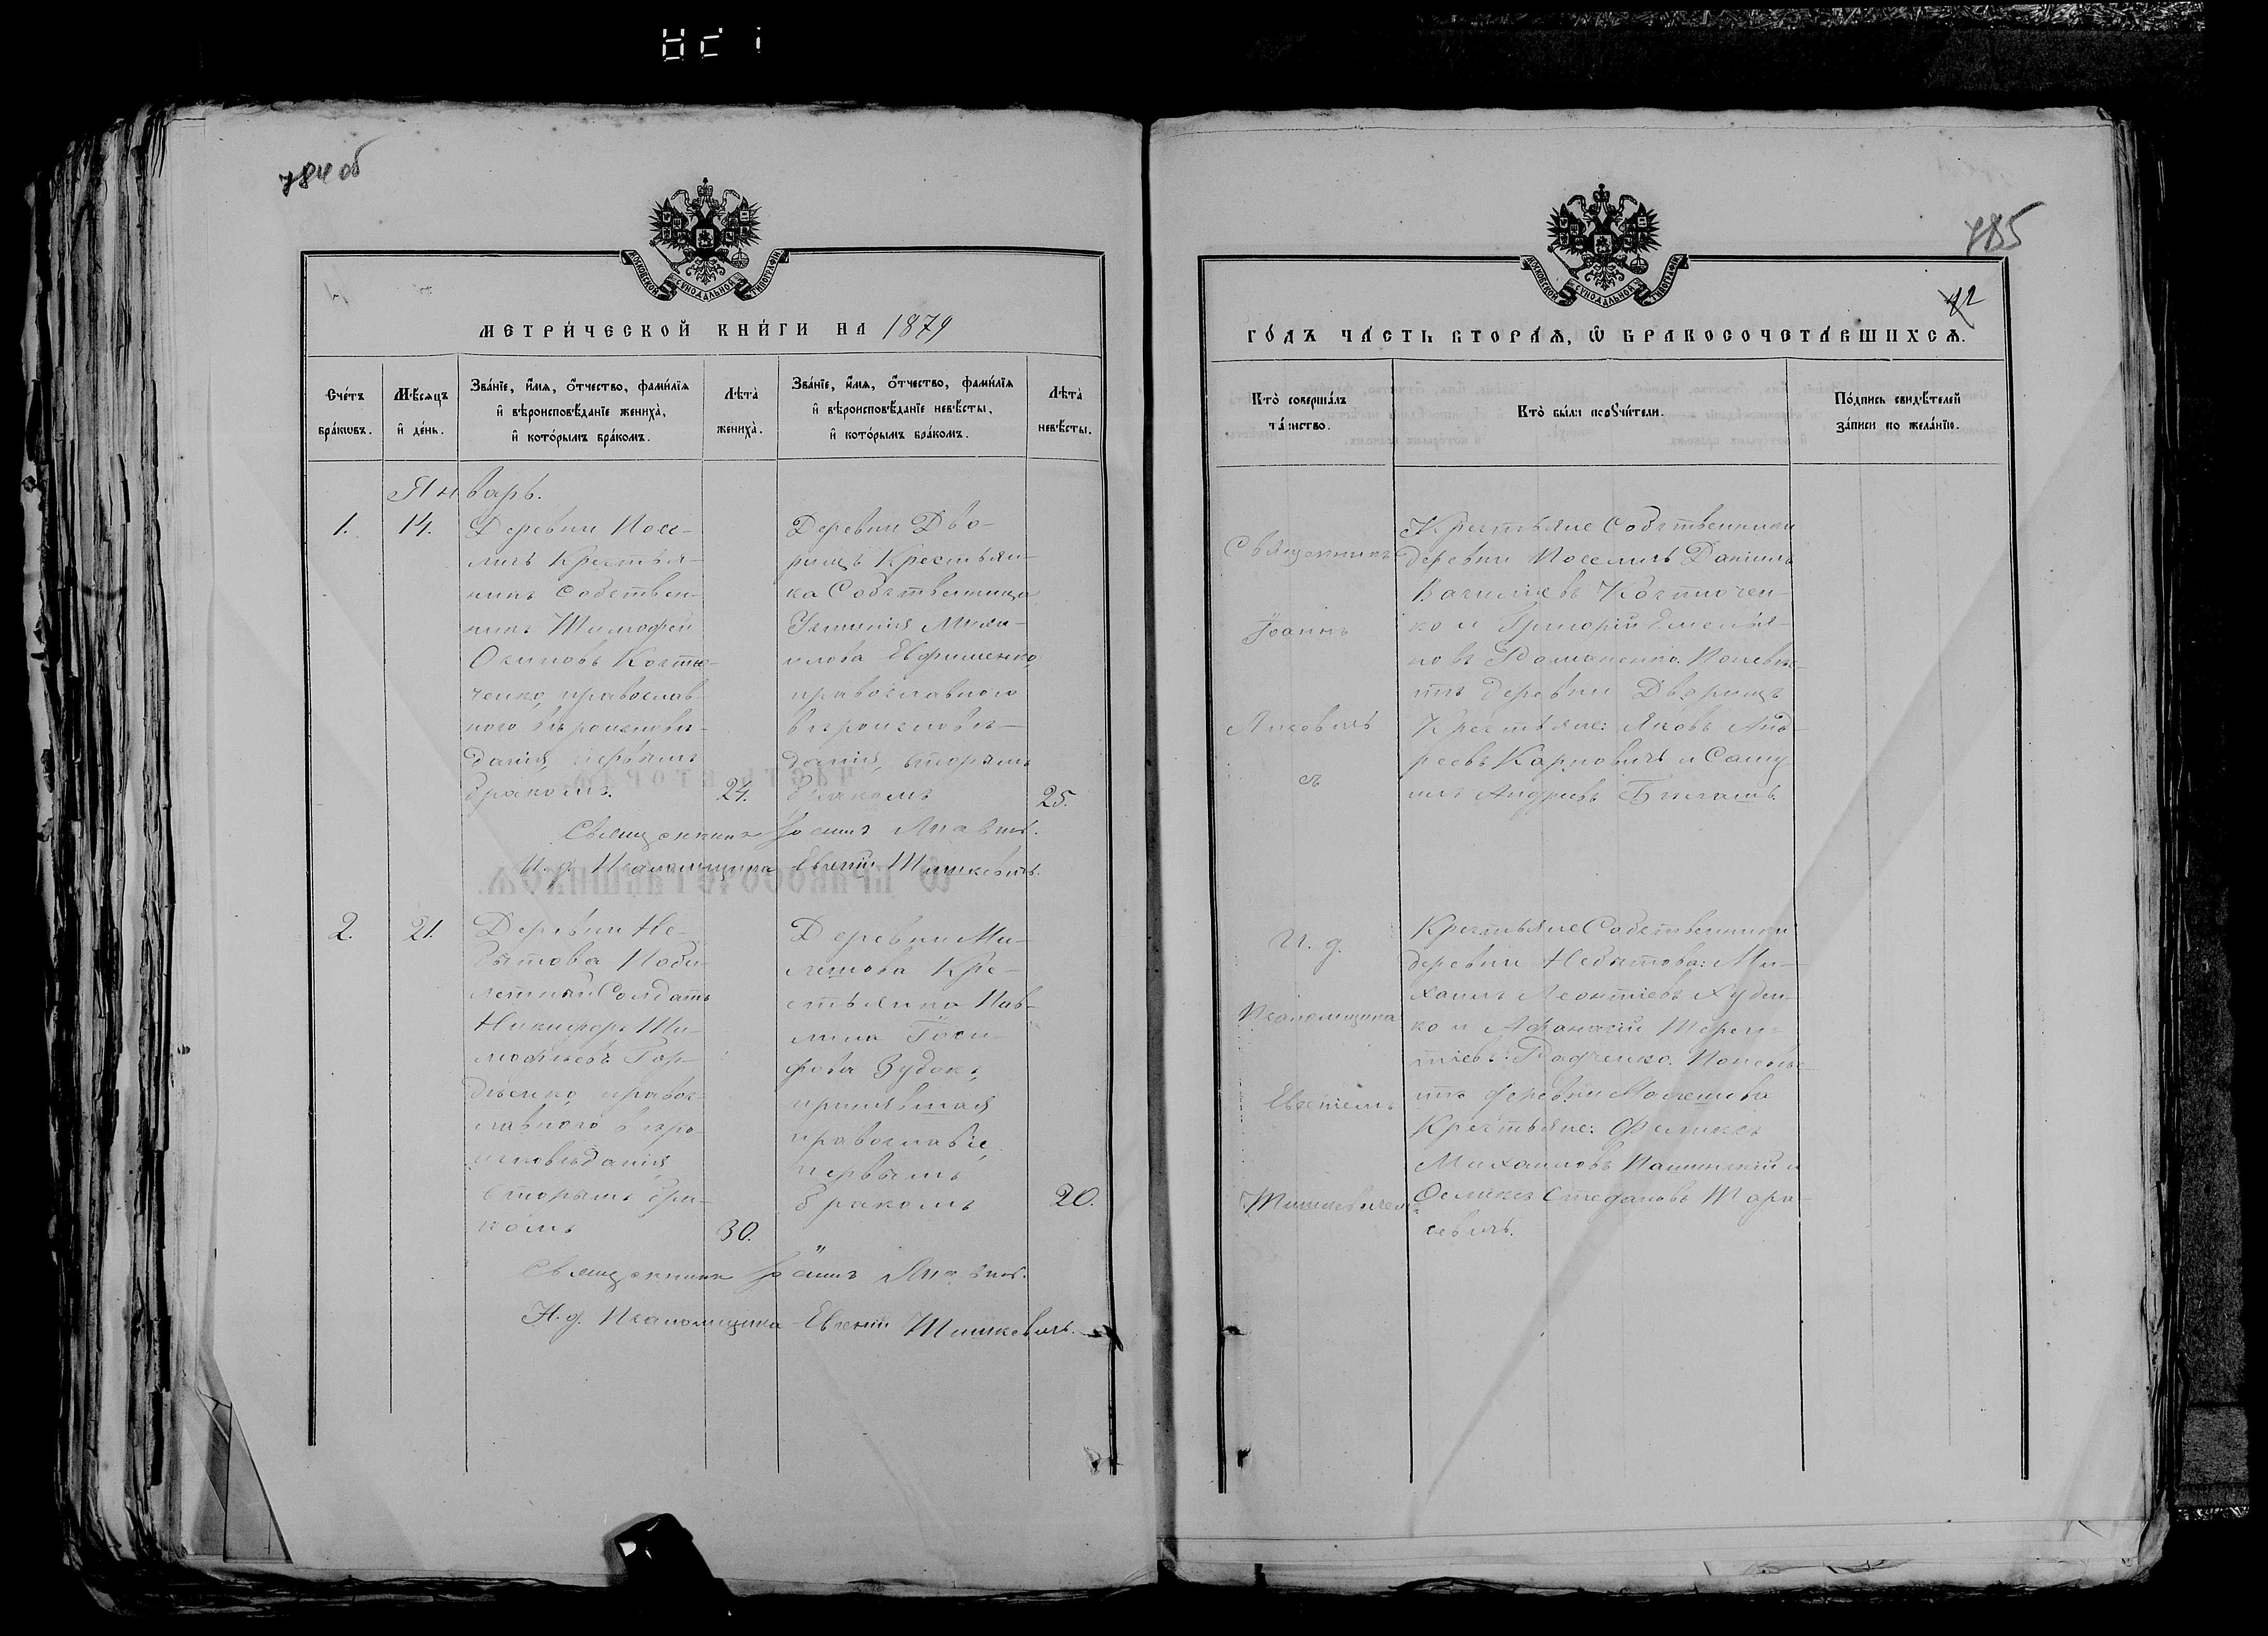 784 об
МОСКОВСКОЙ СѴНОДАЛЬНОЙ ТИПОГРАФІИ
МЕТРИ́ЧЕСКОЙ КНИ́ГИ НА 1879
Сче́тъ бра́кѡвъ.
Мѣ́сяцъ и҆ де́нь.
Зва́нїе, и҆́мя, ѻ҆́тчество, фами́лїя
и҆ вѣроисповѣ́данїе жениха̀,
и҆ кото́рымъ бра́комъ.
Лѣта̀ жениха̀.
Зва́нїе, и҆́мя, ѻ҆́тчество, фами́лїя
и҆ вѣроисповѣ́данїе невѣ́сты,
и҆ кото́рымъ бра́комъ.
Лѣта̀ невѣ́сты.
Январь.
1.
14.
Деревни Посе-
личъ Крестья-
нинъ Собствен-
никъ Тимофей
Осиповъ Костю-
ченко, православ-
ного вѣроисповѣ-
данія, первымъ
бракомъ.
24.
Деревни Дво-
рищъ Крестьян-
ка Собственница
Евфименко,
православного
вѣроисповѣ-
данія, вторымъ
бракомъ
25.
Священникъ Іоаннъ
И. д. Псаломщика Евгеній Шишкевичъ.
2.
21.
Деревни Не-
бытова
Солдатъ
Никифоръ Ти-
мофѣевъ Гор-
дѣенко, правос-
лавного вѣро-
исповѣданія
вторымъ бра-
комъ
30.
Деревни Ми-
лешова Кре-
стьянка Пав-
лина Іоси-
фова Зудокъ,
принявшая
православіе,
первымъ
бракомъ
20.
Священникъ Іоаннъ
И. д. Псаломщика Евгеній Шишкевичъ.
785
МОСКОВСКОЙ СѴНОДАЛЬНОЙ ТИПОГРАФІИ
ГО́ДЪ ЧА́СТЬ ВТОРА́Я, Ѡ҆ БРАКОСОЧЕТА́ВШИХСЯ.
Кто̀ соверша́лъ та́инство.
Кто̀ бы́ли порꙋчи́тели.
По́дпись свидѣ́телей за́писи по жела́нїю.
Священникъ
Іоаннъ
Крестьяне Собственники
деревни Поселичъ Даніилъ
Василіевъ Костючен-
ко и Григорій Емелья-
новъ Романенко. По невѣс-
тѣ деревни Дворищъ
Крестьяне: Яковъ Анд-
реевъ Карповичъ и Саму-
илъ Андреевъ
И. д.
Псаломщика
Евгеніемъ
Шишкевичемъ
Крестьяне Собственники
деревни Небытова: Ми-
хаилъ Леонтіевъ Худен-
ко и Афанасій Терен-
тіевъ Радченко. По невѣс-
тѣ деревни Малешова
Крестьяне: Феликсъ
Михаиловъ и
Феликсъ Стефановъ Тара-
севичъ.